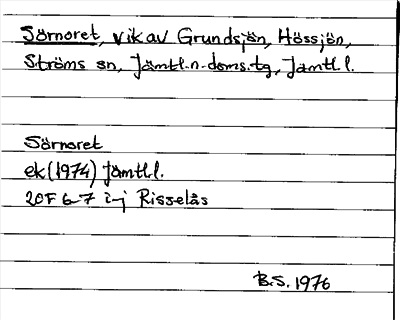 Sörnoret, vik av Grundsjön, Hössjön,
Ströms sn, Jämtl. n. doms. tg, Jämtl. l.
Sörnoret
ek (1974) Jämtl. l.
20F 6-7 i-j Risselås
B.S. 1976